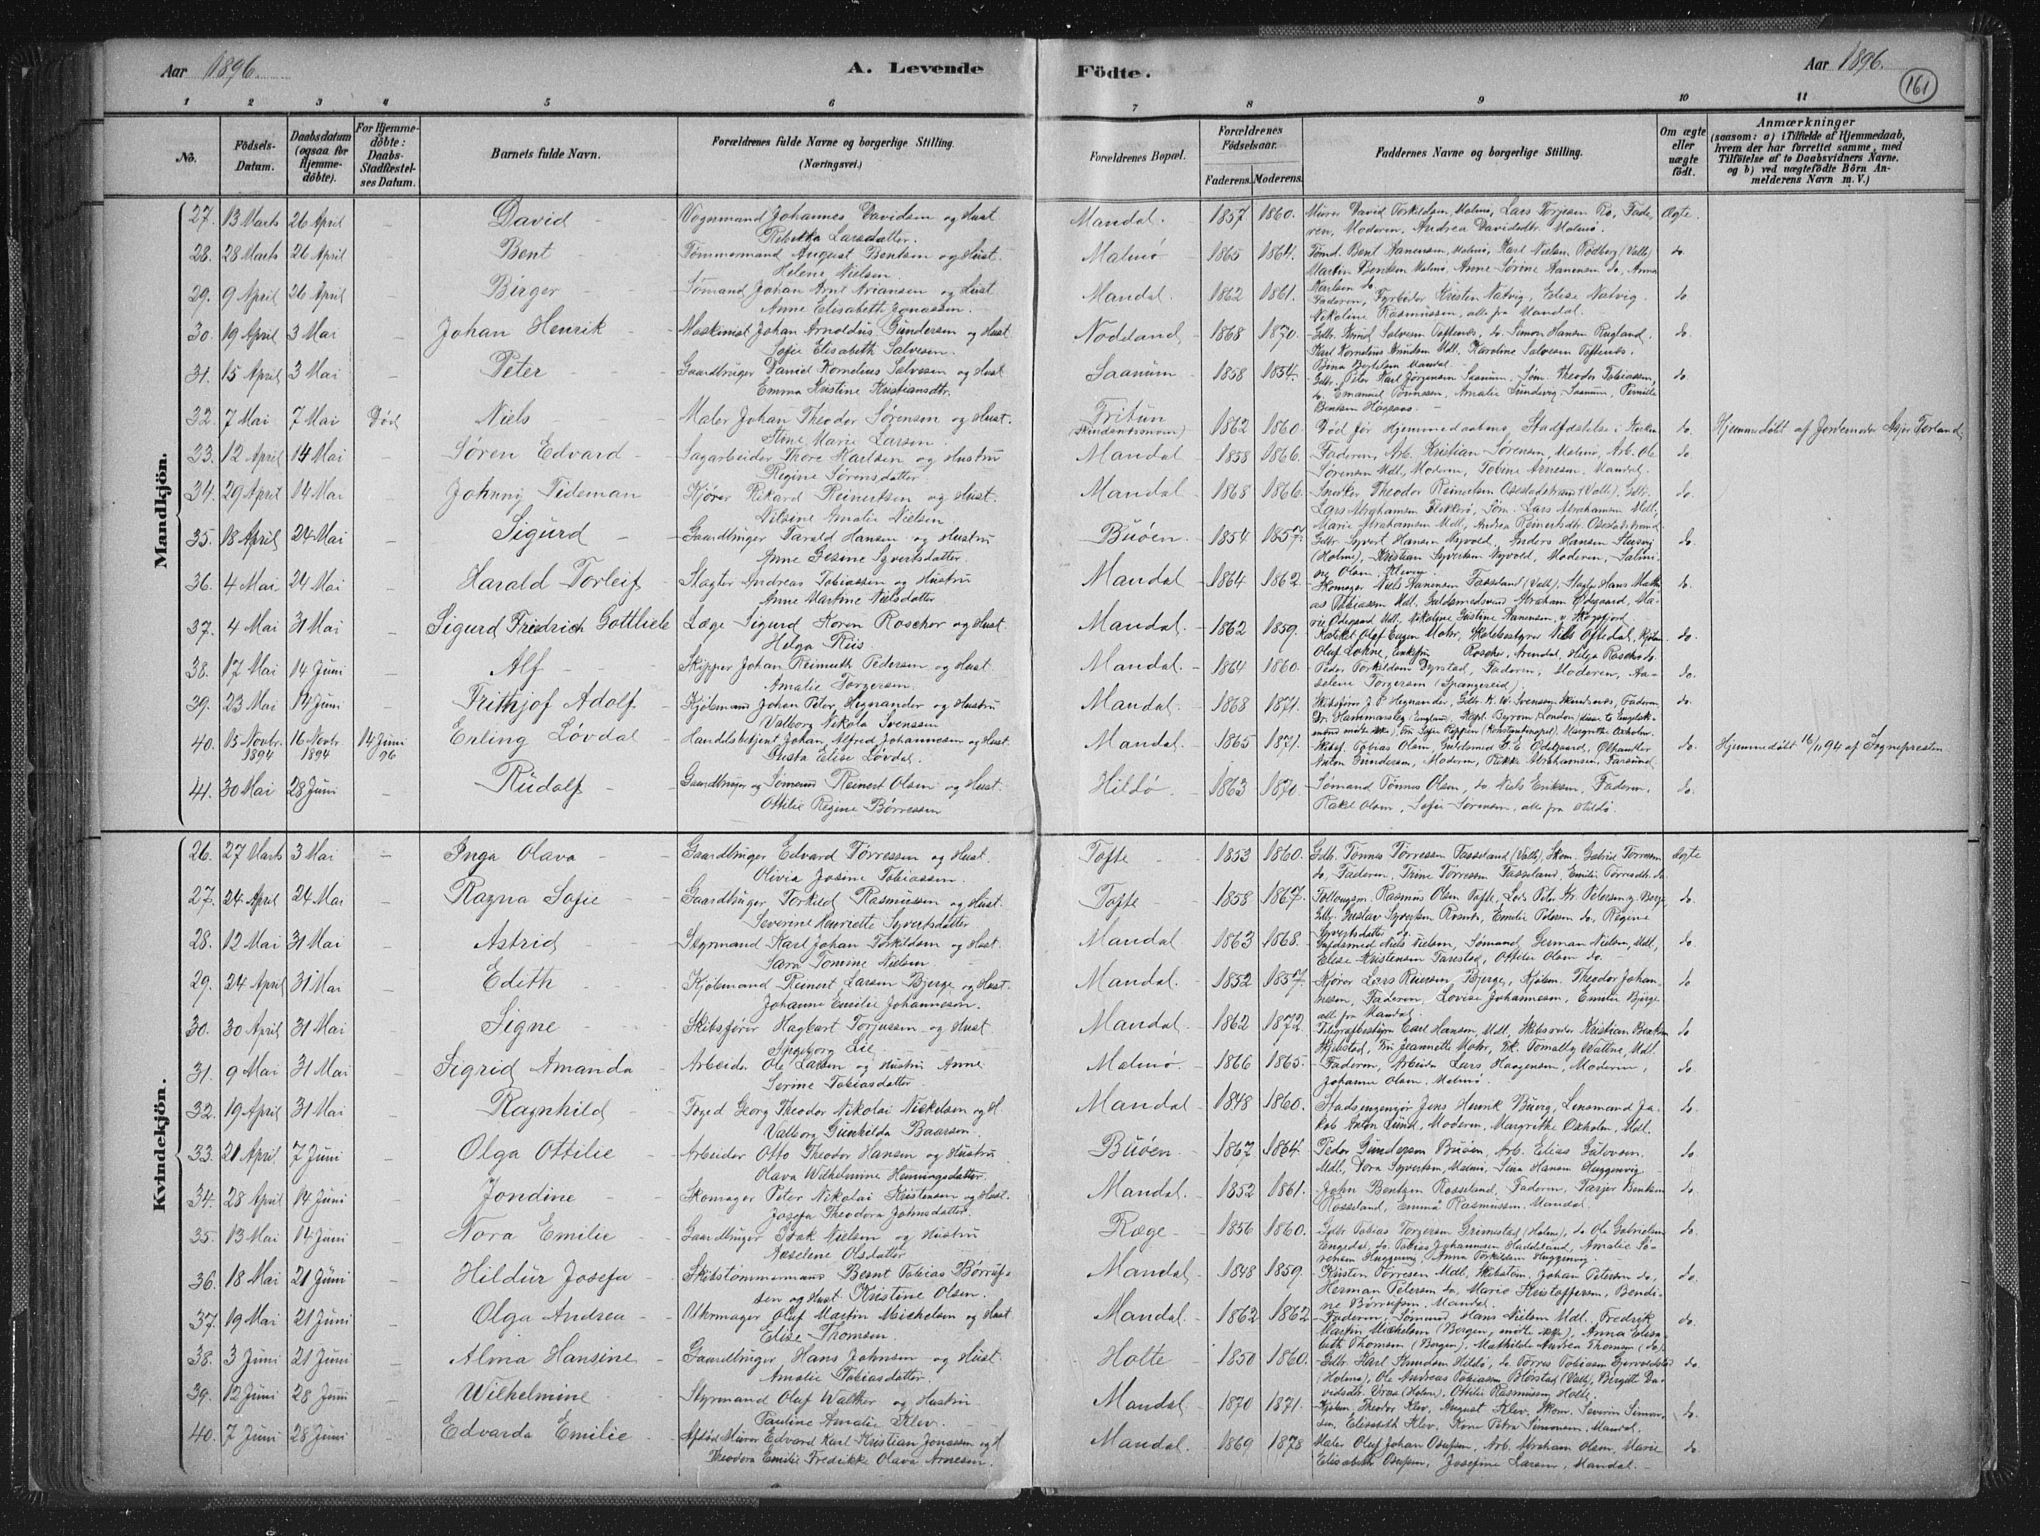 Aar 1896. A. Levende Födte. Aar 1896. 161
1 2 3 4 5 6 7 8 9 10 11
No. Födsels-Datum. Daabsdatum (ogsaa for Hjemmedöbte). For Hjemmedöbte: Daabs-Stadfæstelses Datum. Barnets fulde Navn. Forældrenes fulde Navne og borgerlige Stilling. (Næringsvei.) Forældrenes Bopæl. Forældrenes Födselsaar. Faderens. Moderens. Faddernes Navne og borgerlige Stilling. Om ægte eller uægte födt. Anmærkninger (saasom: a) i Tilfælde af Hjemmedaab, hvem der har forrettet samme, med Tilföielse af to Daabsvidners Navne, og b) ved uægtefödte Börn Anmelderens Navn m. V.)
Mandkjön.
27. 13 Marts 26 April David Vognmand Johannes Davidsen og Hust. Mandal. 1857 1860. Murer David Torkildsen, Malmø, Lars Torjesen do, Fade- Ægte.
Rebekka Larsdatter. ren, Moderen, Andrea Davidsdtr. Malmø.
28. 28 Marts 26 April Bent Tømmermand August Bentsen og Hust. Malmø 1865 1864. Tømd. Bent Hanensen, Malmø, Karl Nielsen Rødberg (Valle) do
Helene Nielsen. Martin Bentsen Malmø, Anne Sørine Hanensen do, Anna
29. 9 April 26 April Birger Sømand Johan Arnt Ariansen og Hust Mandal. 1862 1861. Karlsen do. Faderen, Fyrbøder Kristen Natvig, Elise Natvig, do
Anne Elisabeth Jonassen. Nikoline Rasmussen, alle fra Mandal.
30. 19 April 3 Mai Johan Henrik Maskinist Johan Arnoldus Gundersen og Hust. Nodeland 1868 1870. Gdbr. Knud Salvesen Toftenes, do Simon Hansen Rugland, do.
Sofie Elisabeth Salvesen. Karl Kornelius Knudsen Mdl. Karoline Salvesen Toftenes.
31. 15 April 3 Mai Peter Gaardbruger Daniel Kornelius Salvesen og Hust Saanum 1858 1854. Gdbr. Peter Karl Jørgensen Saanum, Søm. Theodor Tobiassen, do.
Emma Kristine Kristiansdtr. do Emanuel Tønnessen, Amalie Saanum, Pernille
32. 7 Mai 7 Mai Død Niels Maler Johan Theodor Sørensen og Hust. Fritun 1862 1860 Død før Hjemmedaabens Stadfæstelse i Kirken do. Hjemmedøbt af Jordemoder
Stine Marie Larsen
33. 12 April 14 Mai Søren Edvard Sagarbeider Thore Karlsen og Hustru Mandal 1858 1866. Faderen, Arb. Kristian Sørensen, Malmø, Arb. Ole do.
Regine Sørensdatter. Sørensen Mdl, Moderen, Tobine Arnesen, Mandal.
34. 29 April 14 Mai Johnny Tideman Kjører Rikard Reinertsen og Hust. Mandal 1868 1866. Snedker Theodor Reinertsen (Valle), Gdbr. do.
Nilsine Amalie Nielsen Lars Abrahamsen Flekkerø, Søm. Lars Abrahamsen Mdl.
35. 18 April 24 Mai Sigurd Gaardbruger Tarald Hansen og Hustru Buøen 1854 1857. Gdbr. Syvert Hansen Nyvold, Anders Hansen do.
Anne Gesine Syvertsdatter. (Holme), Kristian Syvertsen Nyvold, Moderen,
36. 4 Mai 24 Mai Harald Torleif Slagter Andreas Tobiassen og Hustru Mandal 1864 1862. Skomager Niels Hanensen Fasseland (Valle), Slagter Hans do.
Anne Martine Nielsdatter Tobiassen Mdl. Guldsmedsvend Abraham Ødegaard,
37. 4 Mai 31 Mai Sigurd Friedrich Gottlieb Læge Sigurd Koren Roscher og Hust. Mandal 1862 1859. Olaf Eugen Mohr, Skolebestyrer Niels Oftedal, do.
Helga Riis Roscher, Arendal, Helga Roscher do.
38. 17 Mai 14 Juni Alf Skipper Johan Reimuth Pedersen og Hust Mandal. 1864 1860. Peder Torkildsen Dyrstad, Faderen, Moderen, Aa- do.
Amalie Torgersen. selene Torgersen (Spangereid).
39. 23 Mai 14 Juni Frithjof Adolf Kjøbmand Johan Peter Hegnander og Hustru Mandal 1868 1871. Skibsfører J. P. Hegnander, Gdbr. K. W. Svensen Skindsnæs, Faderen do.
Valborg Nikola Svensen
40. 15 Novbr. 1894 16 Novbr 1894 14 Juni 96 Erling Løvdal Handelsbetjent Johan Alfred Johannesen og Hust. Mandal. 1865 1871. Tobias Olsen, Guldsmed G. E. Ødegaard, do. Hjemmedøbt 16/11 94 af Sognepresten
Gusta Elise Løvdal. Anton Gundersen, Moderen, Rikke Abrahamsen, Farsund.
41. 30 Mai 28 Juni Rudolf Gaardbruger og Sømand Reinert Olsen og Hust. Hildø 1863 1870. Sømand Tønnes Olsen, do Niels Eriksen, Faderen, do.
Ottilie Regine Børresen Rakel Olsen, Sofie Sørensen, alle fra Hildø.
Kvindekjön.
26. 27 Marts 3 Mai Inga Olava Gaardbruger Edvard Tørressen og Hust. Tofte 1853 1860. Gdbr. Tønnes Tørressen Fasseland (Valle), Skom. Gabriel Tørressen Ægte
Olivia Josine Tobiassen. do, Faderen, Trine Tørressen Fasseland, Emilie Tørresdtr. do.
27. 24 April 24 Mai Ragna Sofie Gaardbruger Torkild Rasmussen og Hust. Tofte 1858 1867. Rasmus Olsen Tofte, Lods Peter do.
Severine Henriette Syvertsdatter Gdbr. Gustav Syvertsen, Emilie Petersen do, Regine Syvertsdatter do.
28. 12 Mai 31 Mai Astrid Styrmand Karl Johan Torkildsen og Hust. Mandal 1863 1868. Guldsmed Niels Nielsen, Sømand German Nielsen, Mdl, do.
Sara Tomine Nielsen. Elise Kristensen Tarestad, Ottilie Olsen do.
29. 24 April 31 Mai Edith Kjøbmand Reinert Larsen Bjerge og Hust. Mandal 1852 1857. Kjører Lars Bjerge, Kjøbm. Theodor Johan- do
Johanne Emilie Johannesen. nessen, Faderen, Lovise Johannesen, Emilie Bjerge
30. 30 April 31 Mai Signe Skibsfører Hagbart Torjussen og Hust. Mandal. 1862 1872. Telegrafbestyrer Carl Hansen, Mdl, Kristian do
Ingeborg Lie Fru Jeannette Mohr, Frk. Wattne, Mdl.
31. 9 Mai 31 Mai Sigrid Amanda Arbeider Ole Larsen og Hustru Anne Malmø 1866 1865. Faderen, Arbeider Lars Haagensen, Moderen, do.
Serine Tobiasdatter. Johanne Olsen, Malmø.
32. 19 April 31 Mai Ragnhild Foged Georg Theodor Nikolai Nickelsen og H Mandal 1848 1860. Stadsingeniør Jens Henrik Buerg, Lensmand Ja- do.
Valborg Gunhilda Baarson. kob Anton Lund, Moderen, Margrethe Oxholm, Mdl.
33. 21 April 7 Juni Olga Ottilie Arbeider Otto Theodor Hansen og Hustru Buøen 1867 1864. Peder Gundersen Buøen, Arb. Elias Salvesen do.
Olava Wilhelmine Henningsdatter. Mdl, Dora Syvertsen, Malmø, Lina Hansen Huggenvig
34. 28 April 14 Juni Jondine Skomager Peter Nikolai Kristensen og Hust. Mandal 1852 1861. John Bentsen Rosseland, Faderen, Tarjer Bentsen do.
Josefa Theodora Johnsdatter. Rosseland, Emma Rasmussen, Mandal.
35. 13 Mai 14 Juni Nora Emilie Gaardbruger Isak Nielsen og Hustru Ræge 1856 1860. Gdbr Tobias Torgersen Grimestad (Holme), do Ole Gabrielsen do.
Aaselene Olsdatter Engedal, do Tobias Johannesen Haddeland, Amalie Sø-
36. 18 Mai 21 Juni Hildur Josefa Skibstømmermand Bernt Tobias Børruf- Mandal 1848 1859. Kristen Tørresen Mdl, Skibstøm. Johan Petersen do, do.
sen og Hust. Kristine Olsen. Herman Petersen do, Marie Kristoffersen, Bendi-
37. 19 Mai 21 Juni Olga Andrea Urmager Oluf Martin Michelsen og Hust Mandal 1862 1862 Faderen, Sømand Hans Nielsen Mdl. Fredrik do.
Elise Thomsen. Martin Michelsen (Bergen, mødte ikke), Anna Elisa-
38. 3 Juni 21 Juni Alma Hansine Gaardbruger Hans Johnsen og Hust. Holte 1850 1860. beth Thomsen (Bergen), Mathilde Andrea Thomsen (do). Gdbr. Karl Knudsen Hildø, do Tørres Tobiassen do.
Amalie Tobiasdatter. (Holme), Ole Andreas Tobiassen (Valle), Birgitte Da-
39. 12 Juni 28 Juni Wilhelmine Styrmand Oluf Walker og Hustru Mandal 1870 1871. vidsdtr. Vraa (Holme), Ottilie Rasmussen Holte. Kjøbm. Theodor Klev, August Klev, Skom. Severin Simon- do.
Pauline Amalie Klev. sen, Elisabeth Klev, Petra Simonsen, Mandal.
40. 7 Juni 28 Juni Edvarda Emilie Afdød Murer Edvard Karl Kristian Jonassen og H Mandal. 1869 1878 Maler Oluf Johan Osufsen, Arb. Abraham Olsen, Marie do.
Theodora Emilie Fredrikke Olava Arnesen. Elisabeth Osufsen, Josefine Larsen, Mandal.